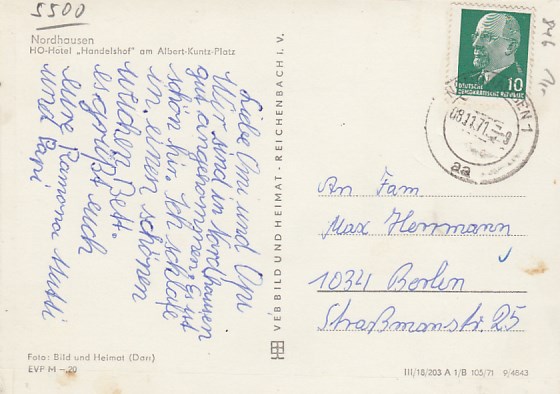 5500
Nordhausen
HO-Hotel „Handelshof" am Albert-Kuntz-Platz
Liebe Omi und Opi
Wir sind in Nordhausen
gut angekommen. Es ist
schön hir. Ich schlafe
in einen schönen
weichen Bett.
es grüßt euch
eure Ramona Mutti
und Papi
Foto: Bild und Heimat (Darr)
EVP M –.20
VEB BILD UND HEIMAT · REICHENBACH I. V.
DEUTSCHE
DEMOKRATISCHE REPUBLIK
10
08.11.71
aa
An Fam.
Max Herrmann
1034 Berlin
Straßmanstr. 25
III/18/203 A 1/B 105/71 9/4643